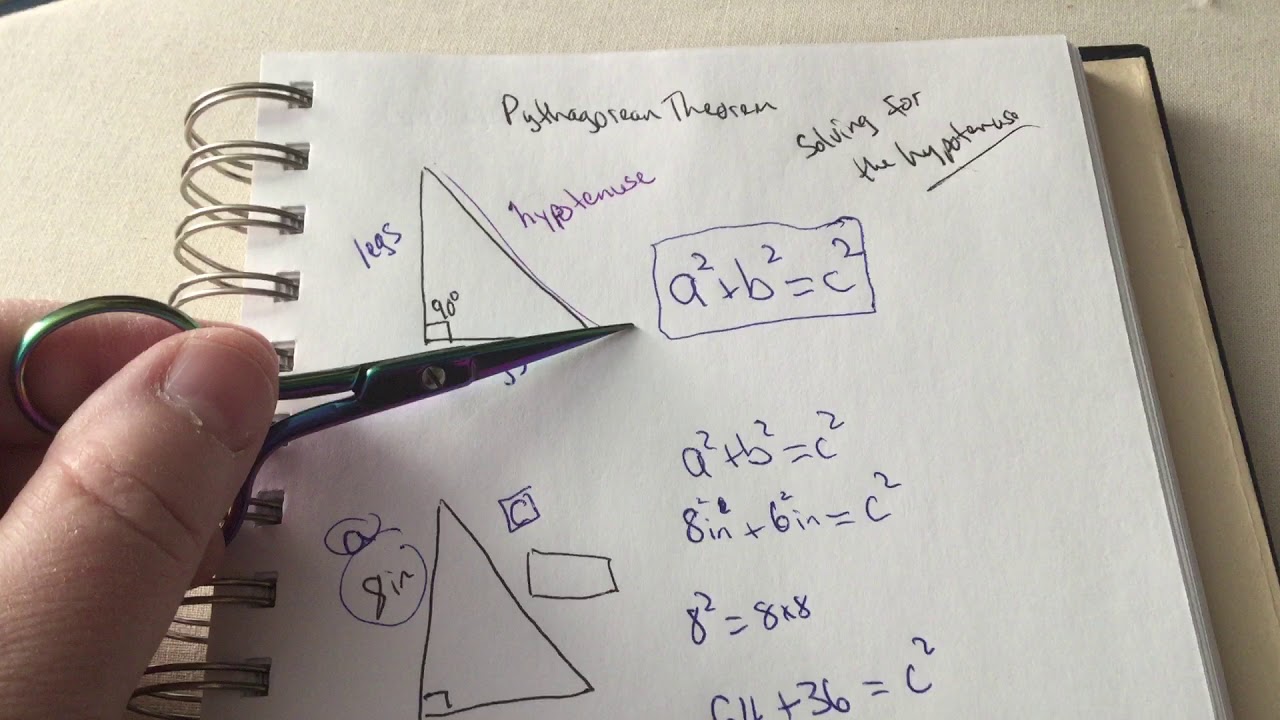 Pythagorean Theorem
Solving for
the hypotenuse
legs
hypotenuse
90°
a²+b²=c²
a²+b²=c²
8²in+6²in=c²
8²=8×8
64+36=c²
a
8in
C